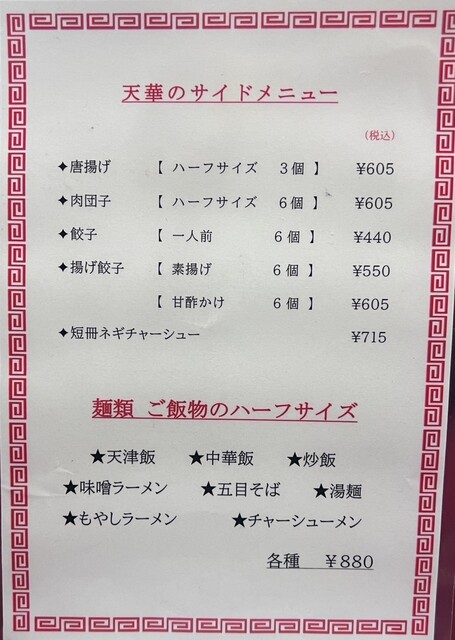 天華のサイドメニュー
(税込)
✦唐揚げ 【 ハーフサイズ 3個 】 ¥605
✦肉団子 【 ハーフサイズ 6個 】 ¥605
✦餃子 【 一人前 6個 】 ¥440
✦揚げ餃子 【 素揚げ 6個 】 ¥550
【 甘酢かけ 6個 】 ¥605
✦短冊ネギチャーシュー ¥715
麺類 ご飯物のハーフサイズ
★天津飯 ★中華飯 ★炒飯
★味噌ラーメン ★五目そば ★湯麺
★もやしラーメン ★チャーシューメン
各種 ¥880